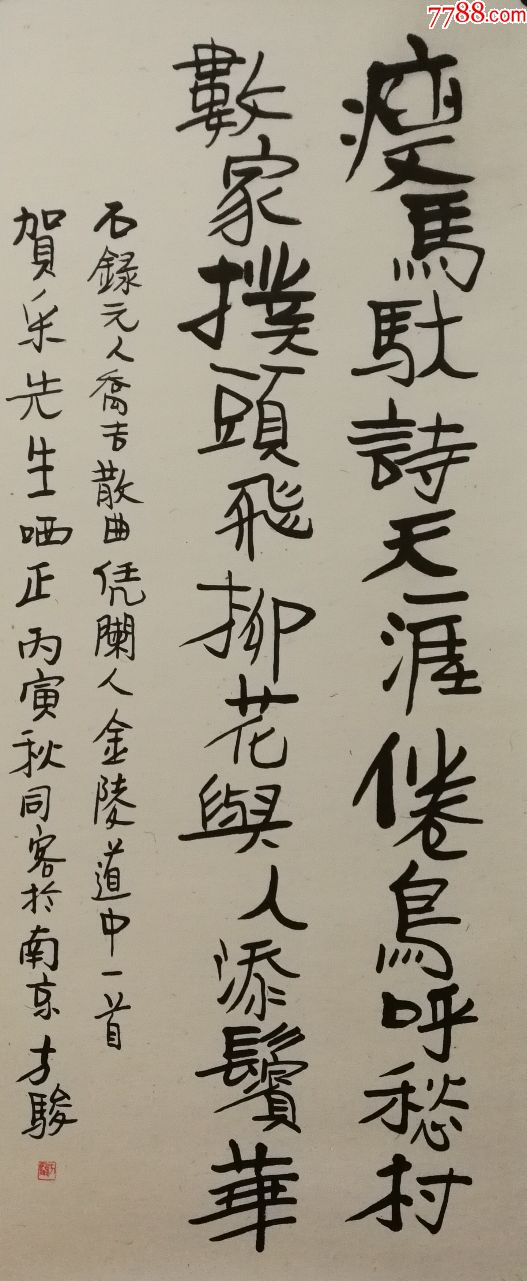 7788.com
瘦馬馱詩天一涯倦鳥呼愁村
數家撲頭飛柳花與人添鬢華
右錄元人喬吉散曲凭闌人金陵道中一首
賀采先生哂正丙寅秋同客於南京方駿